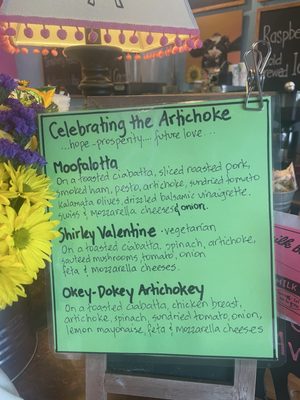 Celebrating the Artichoke
...hope - prosperity.... future love ...
Moofalotta
On a toasted ciabatta, sliced roasted pork,
smoked ham, pesto, artichoke, sundried tomato
kalamata olives, drizzled balsamic vinaigrette.
swiss & mozzarella cheeses & onion.
Shirley Valentine - vegetarian
On a toasted ciabatta, spinach, artichoke,
sauteed mushrooms, tomato, onion
feta & mozzarella cheeses.
Okey-Dokey Artichokey
On a toasted ciabatta, chicken breast,
artichoke, spinach, sundried tomato, onion,
lemon mayonaise, feta & mozzarella cheeses
Raspbe